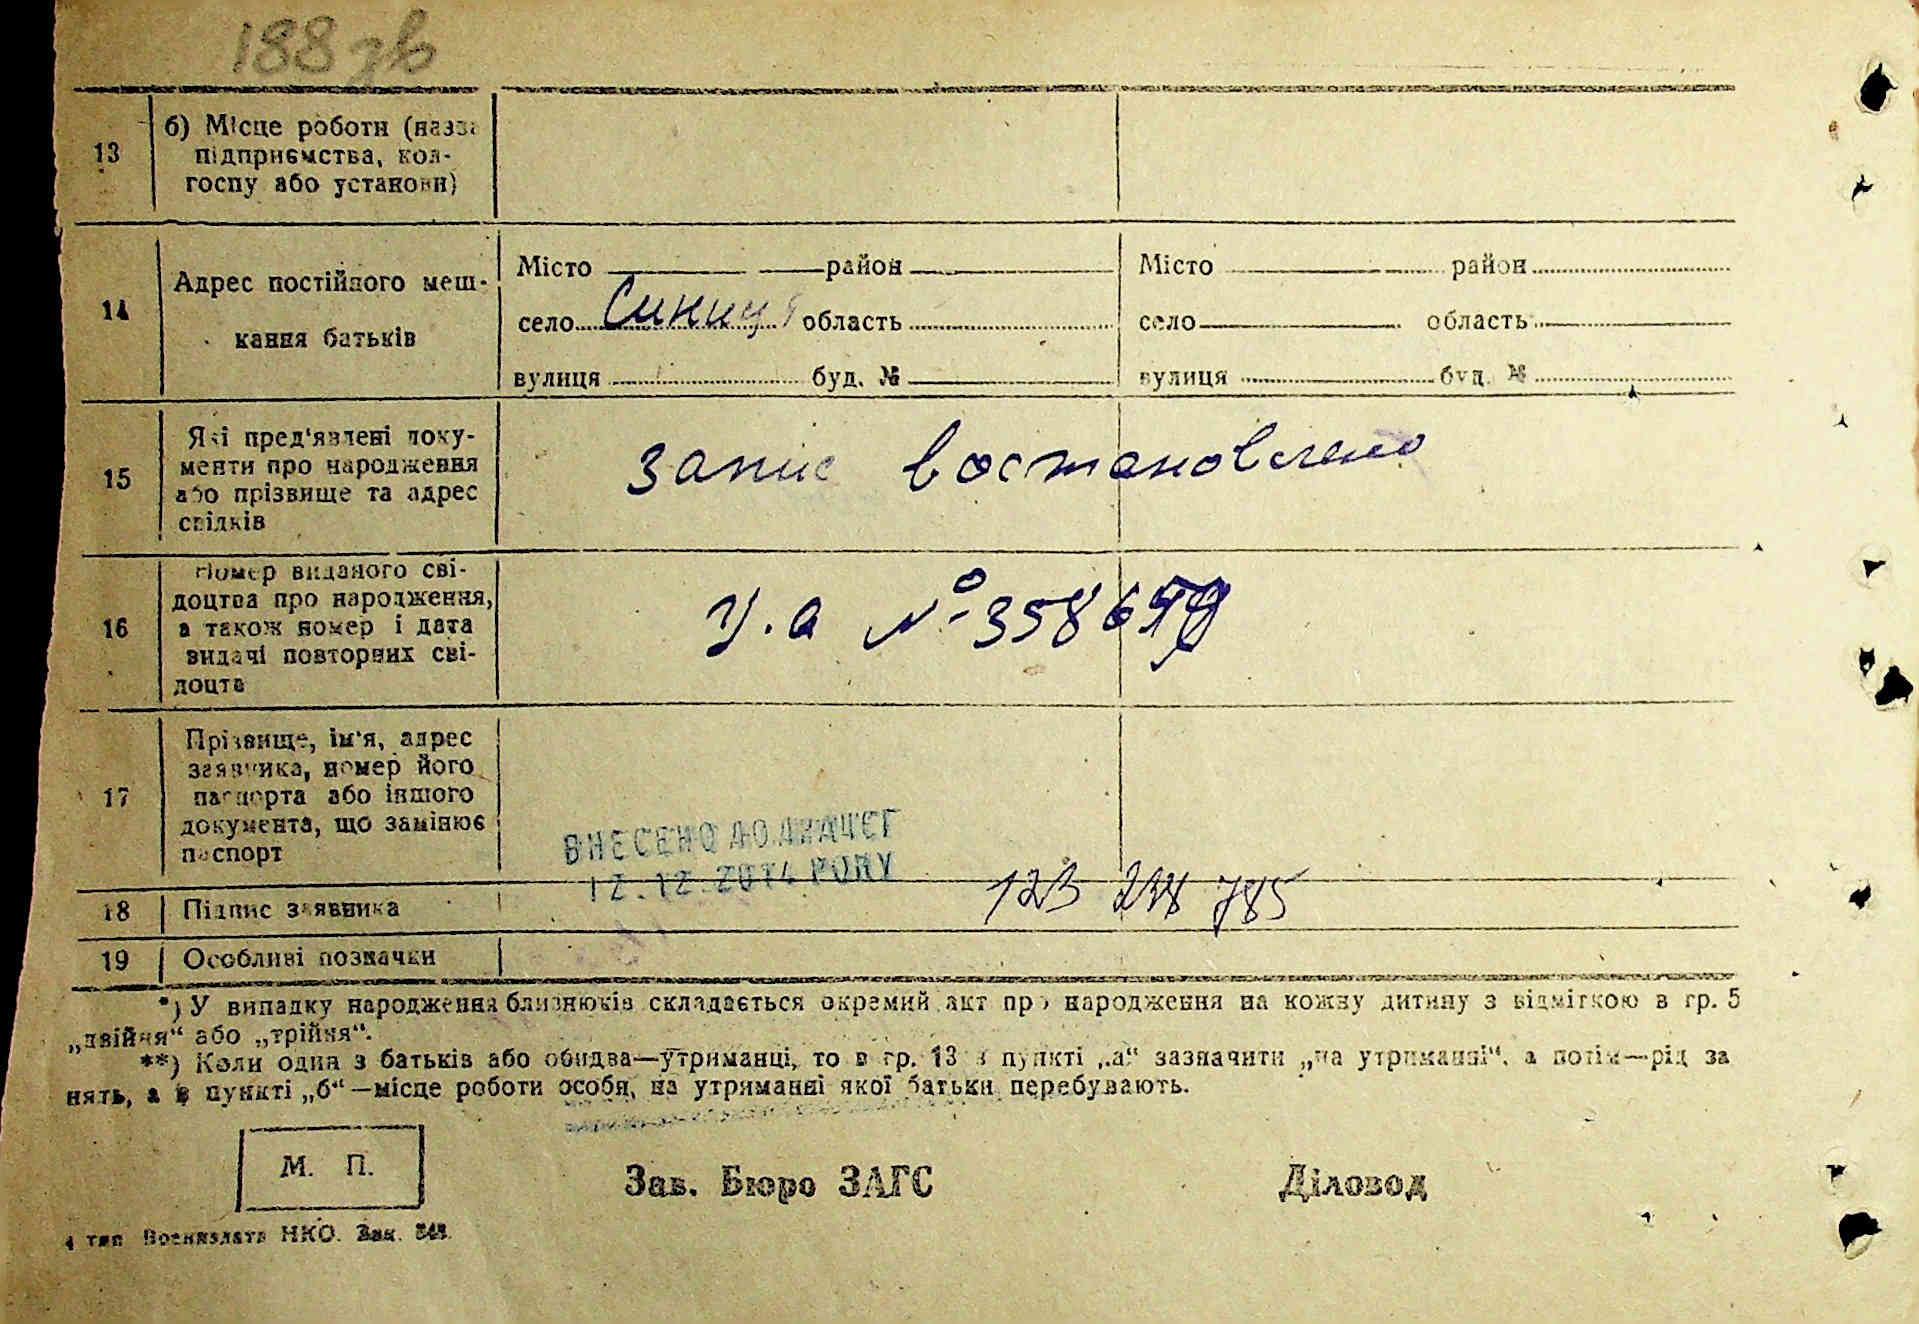 188 зв
13
б) Місце роботи (назва
підприємства, кол-
госпу або установи)
14
Адрес постійного меш-
кання батьків
Місто район
село Синиця область
вулиця буд. №
Місто район
село область
вулиця буд. №
15
Які пред'явлені доку-
менти про народження
або прізвище та адрес
свідків
запис востановлено
16
Номер виданого сві-
доцтва про народження,
а також номер і дата
видачі повторних сві-
доцтв
№ 3586
17
Прізвище, ім'я, адрес
заявника, номер його
паспорта або іншого
документа, що замінює
паспорт
ВНЕСЕНО ДО ДРАЦСГ
12.12.2014 РОКУ
18
Підпис заявника
123 238 785
19
Особливі позначки
*) У випадку народження близнюків складається окремий акт про народження на кожну дитину з відміткою в гр. 5
„двійня“ або „трійня“.
**) Коли один з батьків або обидва—утриманці, то в гр. 13 в пункті „а“ зазначити „на утриманні“, а потім—рід за
нять, а в пункті „б“—місце роботи особи, на утриманні якої батьки перебувають.
М. П.
Зав. Бюро ЗАГС
Діловод
4 тип Воениздата НКО. Зак. 348.